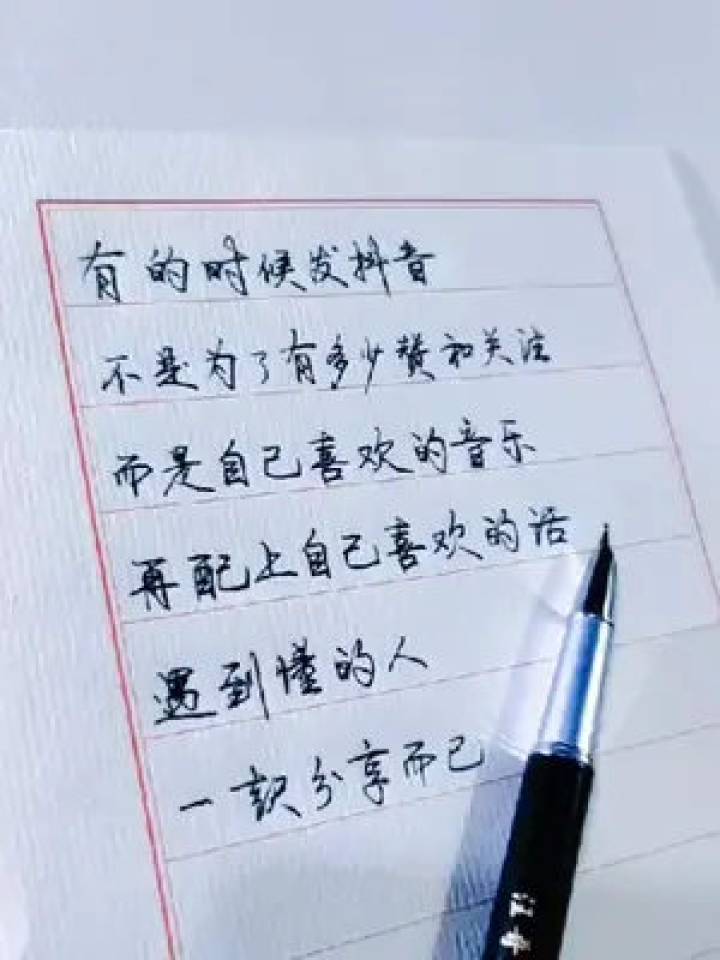 有的时候发抖音
不是为了有多少赞和关注
而是自己喜欢的音乐
再配上自己喜欢的话
遇到懂的人
一起分享而已